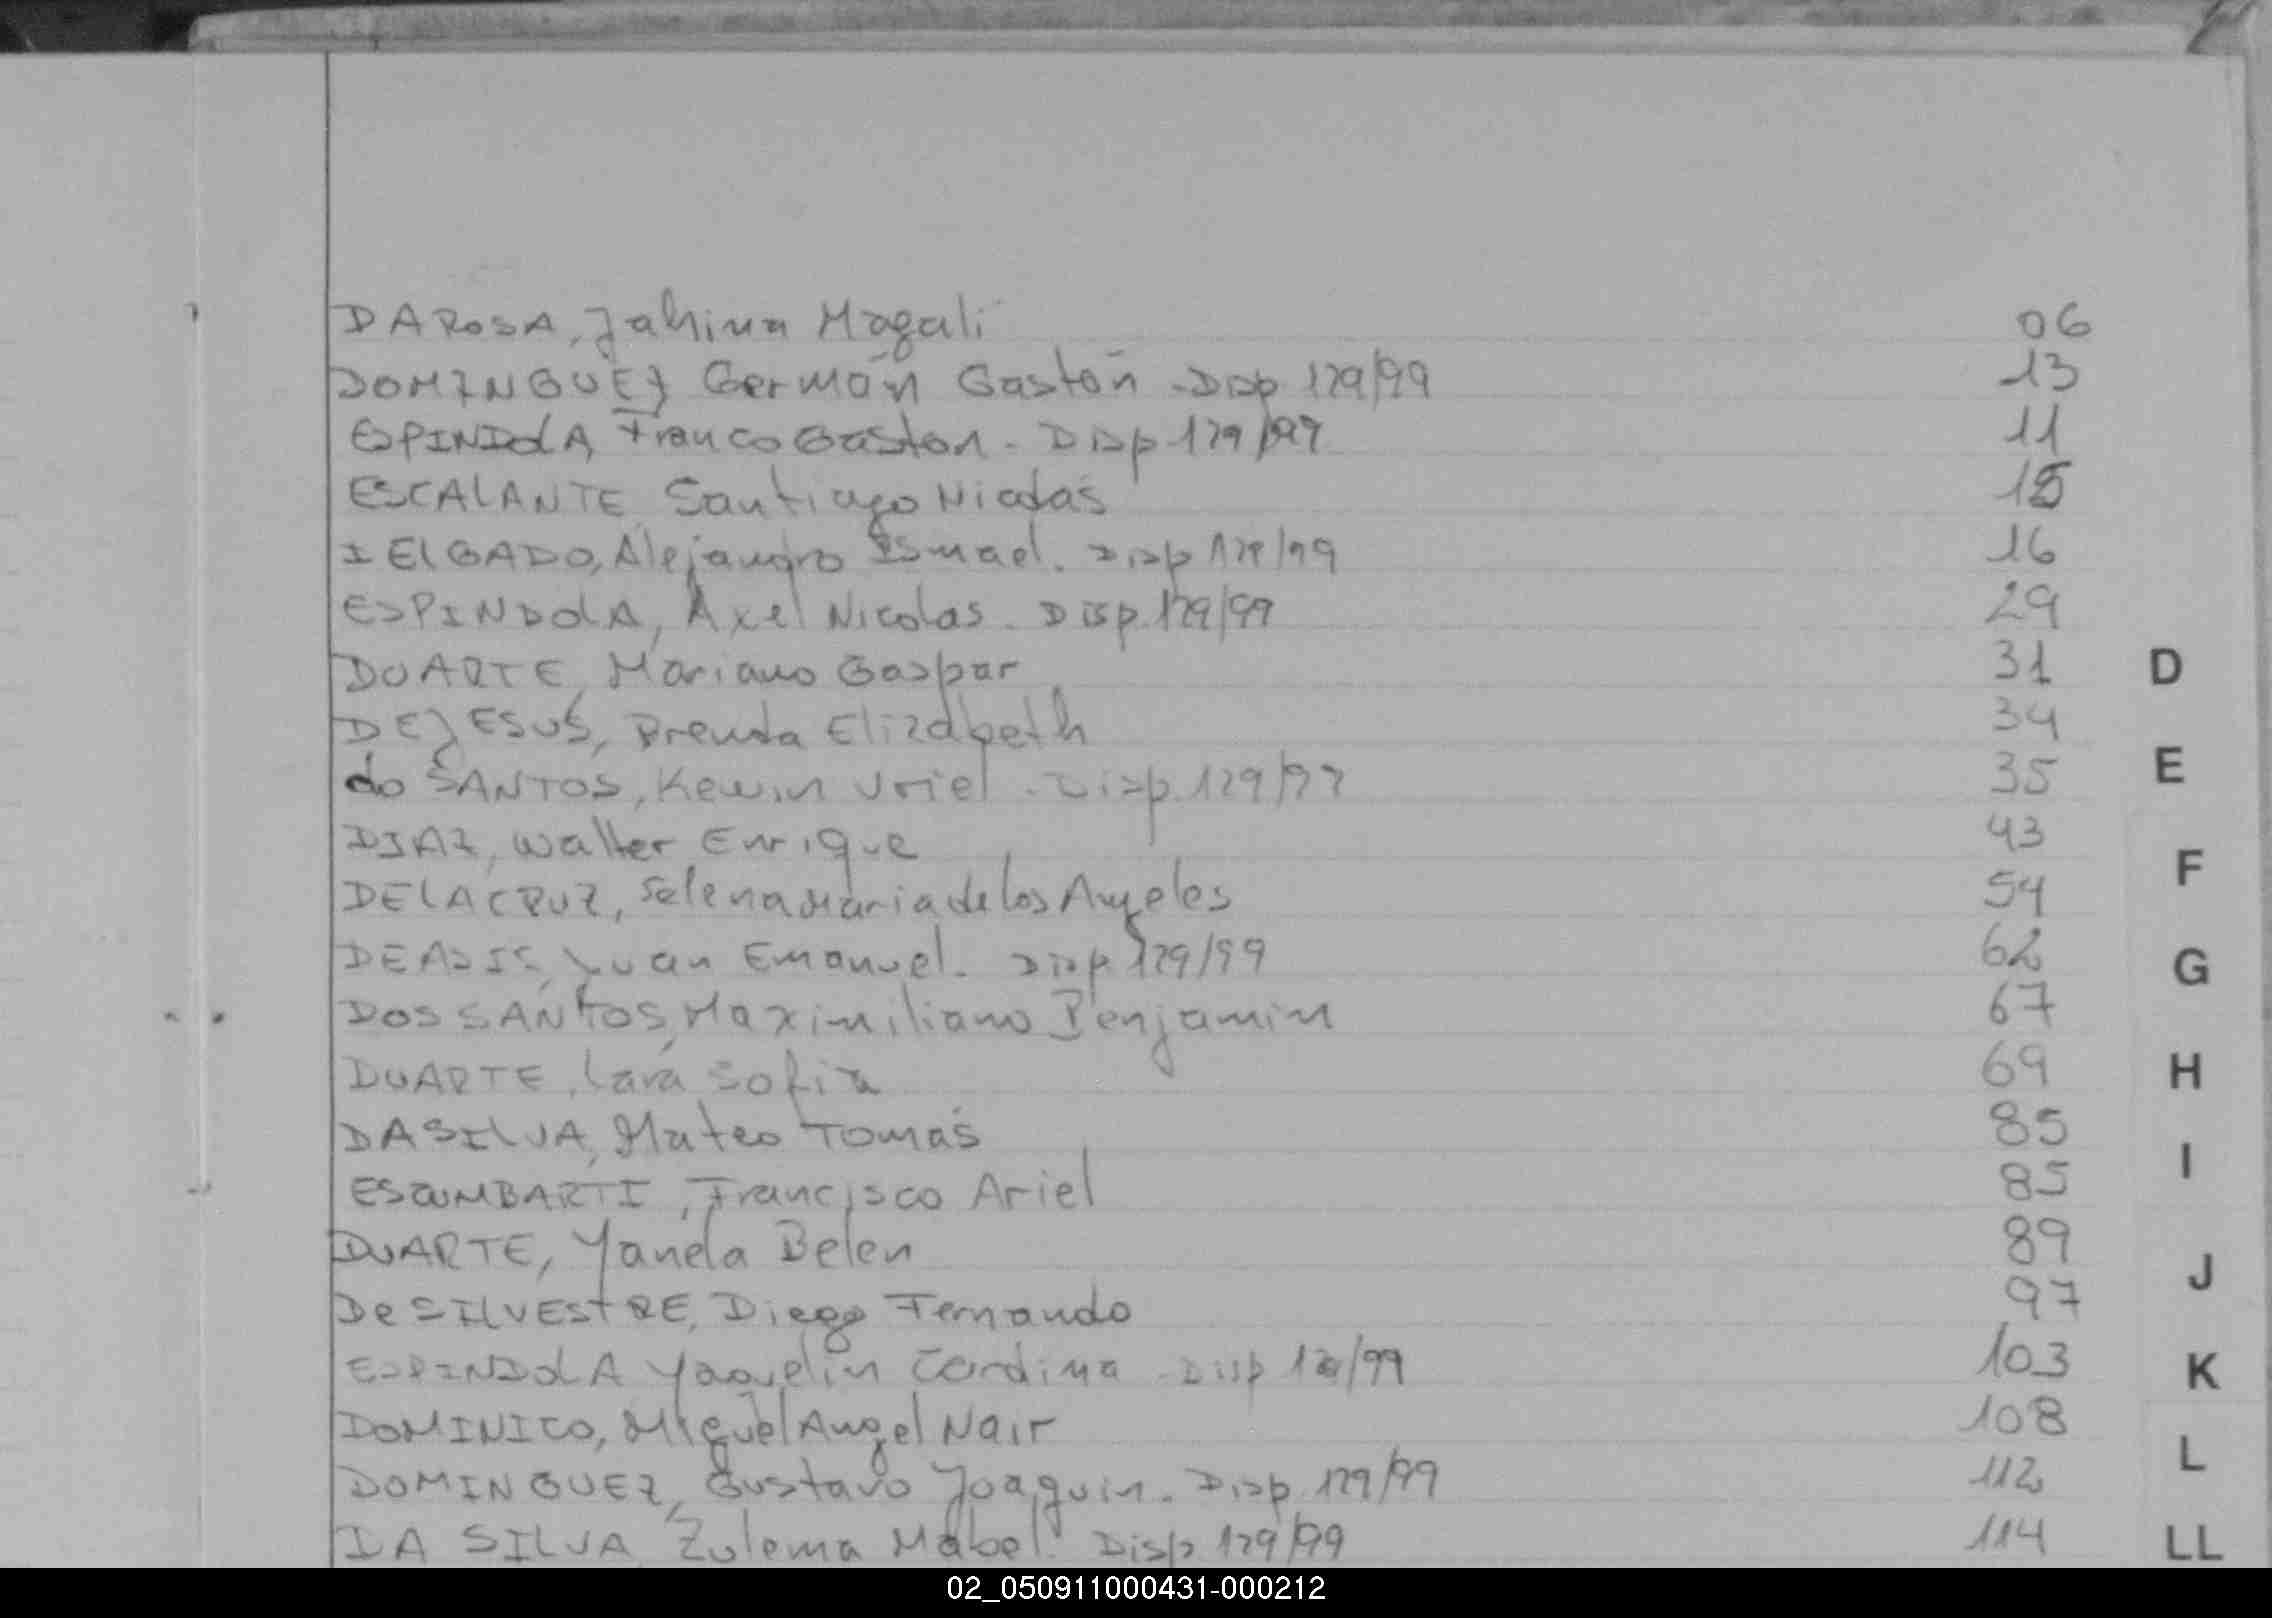 DAROSA, Jahina Magali 06
DOMINGUEZ Germán Gastón - Disp 129/99 13
ESPINDOLA, Franco Gaston - Disp 129/99 11
ESCALANTE, Santiago Nicolás 15
DELGADO, Alejandro Ismael. Disp 129/99 16
ESPINDOLA, Axel Nicolas - Disp. 129/99 29
DUARTE, Mariano Gaspar 31
D
DEJESUS, Brenda Elizabeth 34
do SANTOS, Kewin Uriel - Disp. 129/99 35
E
DIAZ, Walter Enrique 43
DELACRUZ, Selena Maria de los Angeles 54
F
Juan Emanuel - Disp 129/99 62
G
DOSSANTOS, Maximiliano Benjamin 67
DUARTE, Lara Sofia 69
H
DASILVA, Mateo Tomás 85
ESCUMBARTI, Francisco Ariel 85
I
DUARTE, Yanela Belen 89
De SILVESTRE, Diego Fernando 97
J
ESPINDOLA Yaquelin - Disp 129/99 103
K
DOMINICO, Miguel Angel Nair 108
DOMINGUEZ, Gustavo Joaquin. Disp. 129/99 112
L
DA SILVA, Zulema Mabel. Disp 129/99 114
LL
02_050911000431-000212